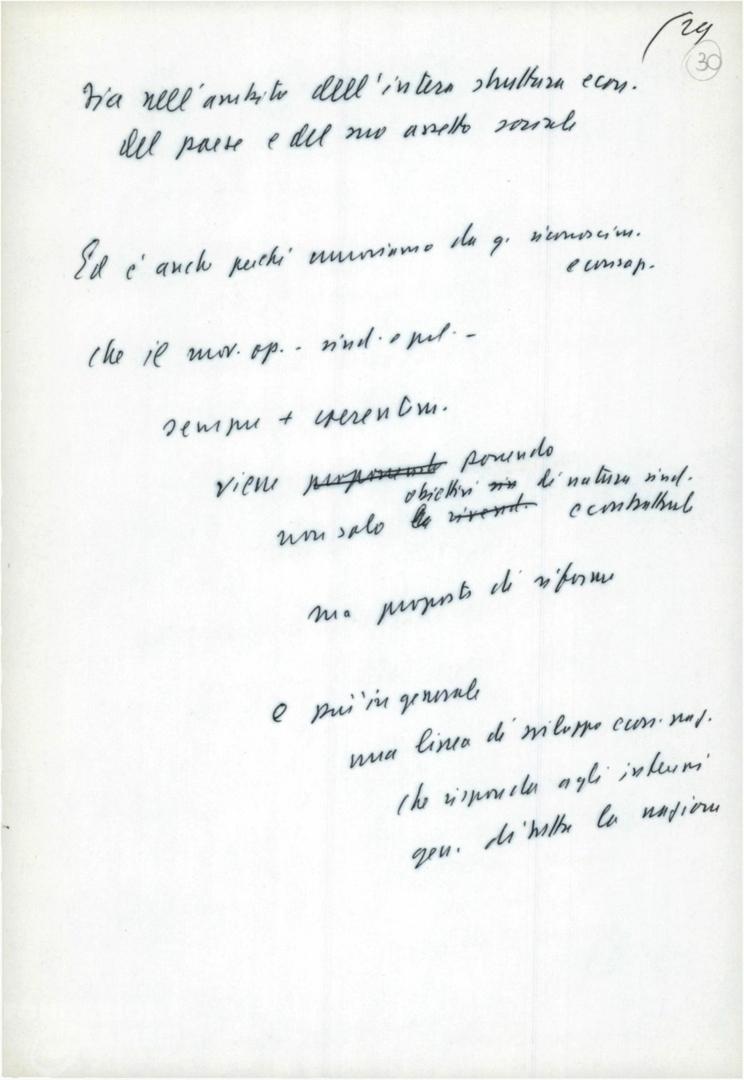 29
30
sia nell'ambito dell'intera struttura econ.
del paese e del suo assetto sociale
Ed è anche perché muoviamo da q. riconoscim.
e consap.
che il mov. op. - sind. e pol. -
sempre + coerentem.
viene proponendo ponendo
obiettivi sin di natura sind.
non solo la rivend. e contrattuale
ma proposte di riforme
e più in generale
una linea di sviluppo econ. naz.
che risponda agli interessi
gen. di tutta la nazione